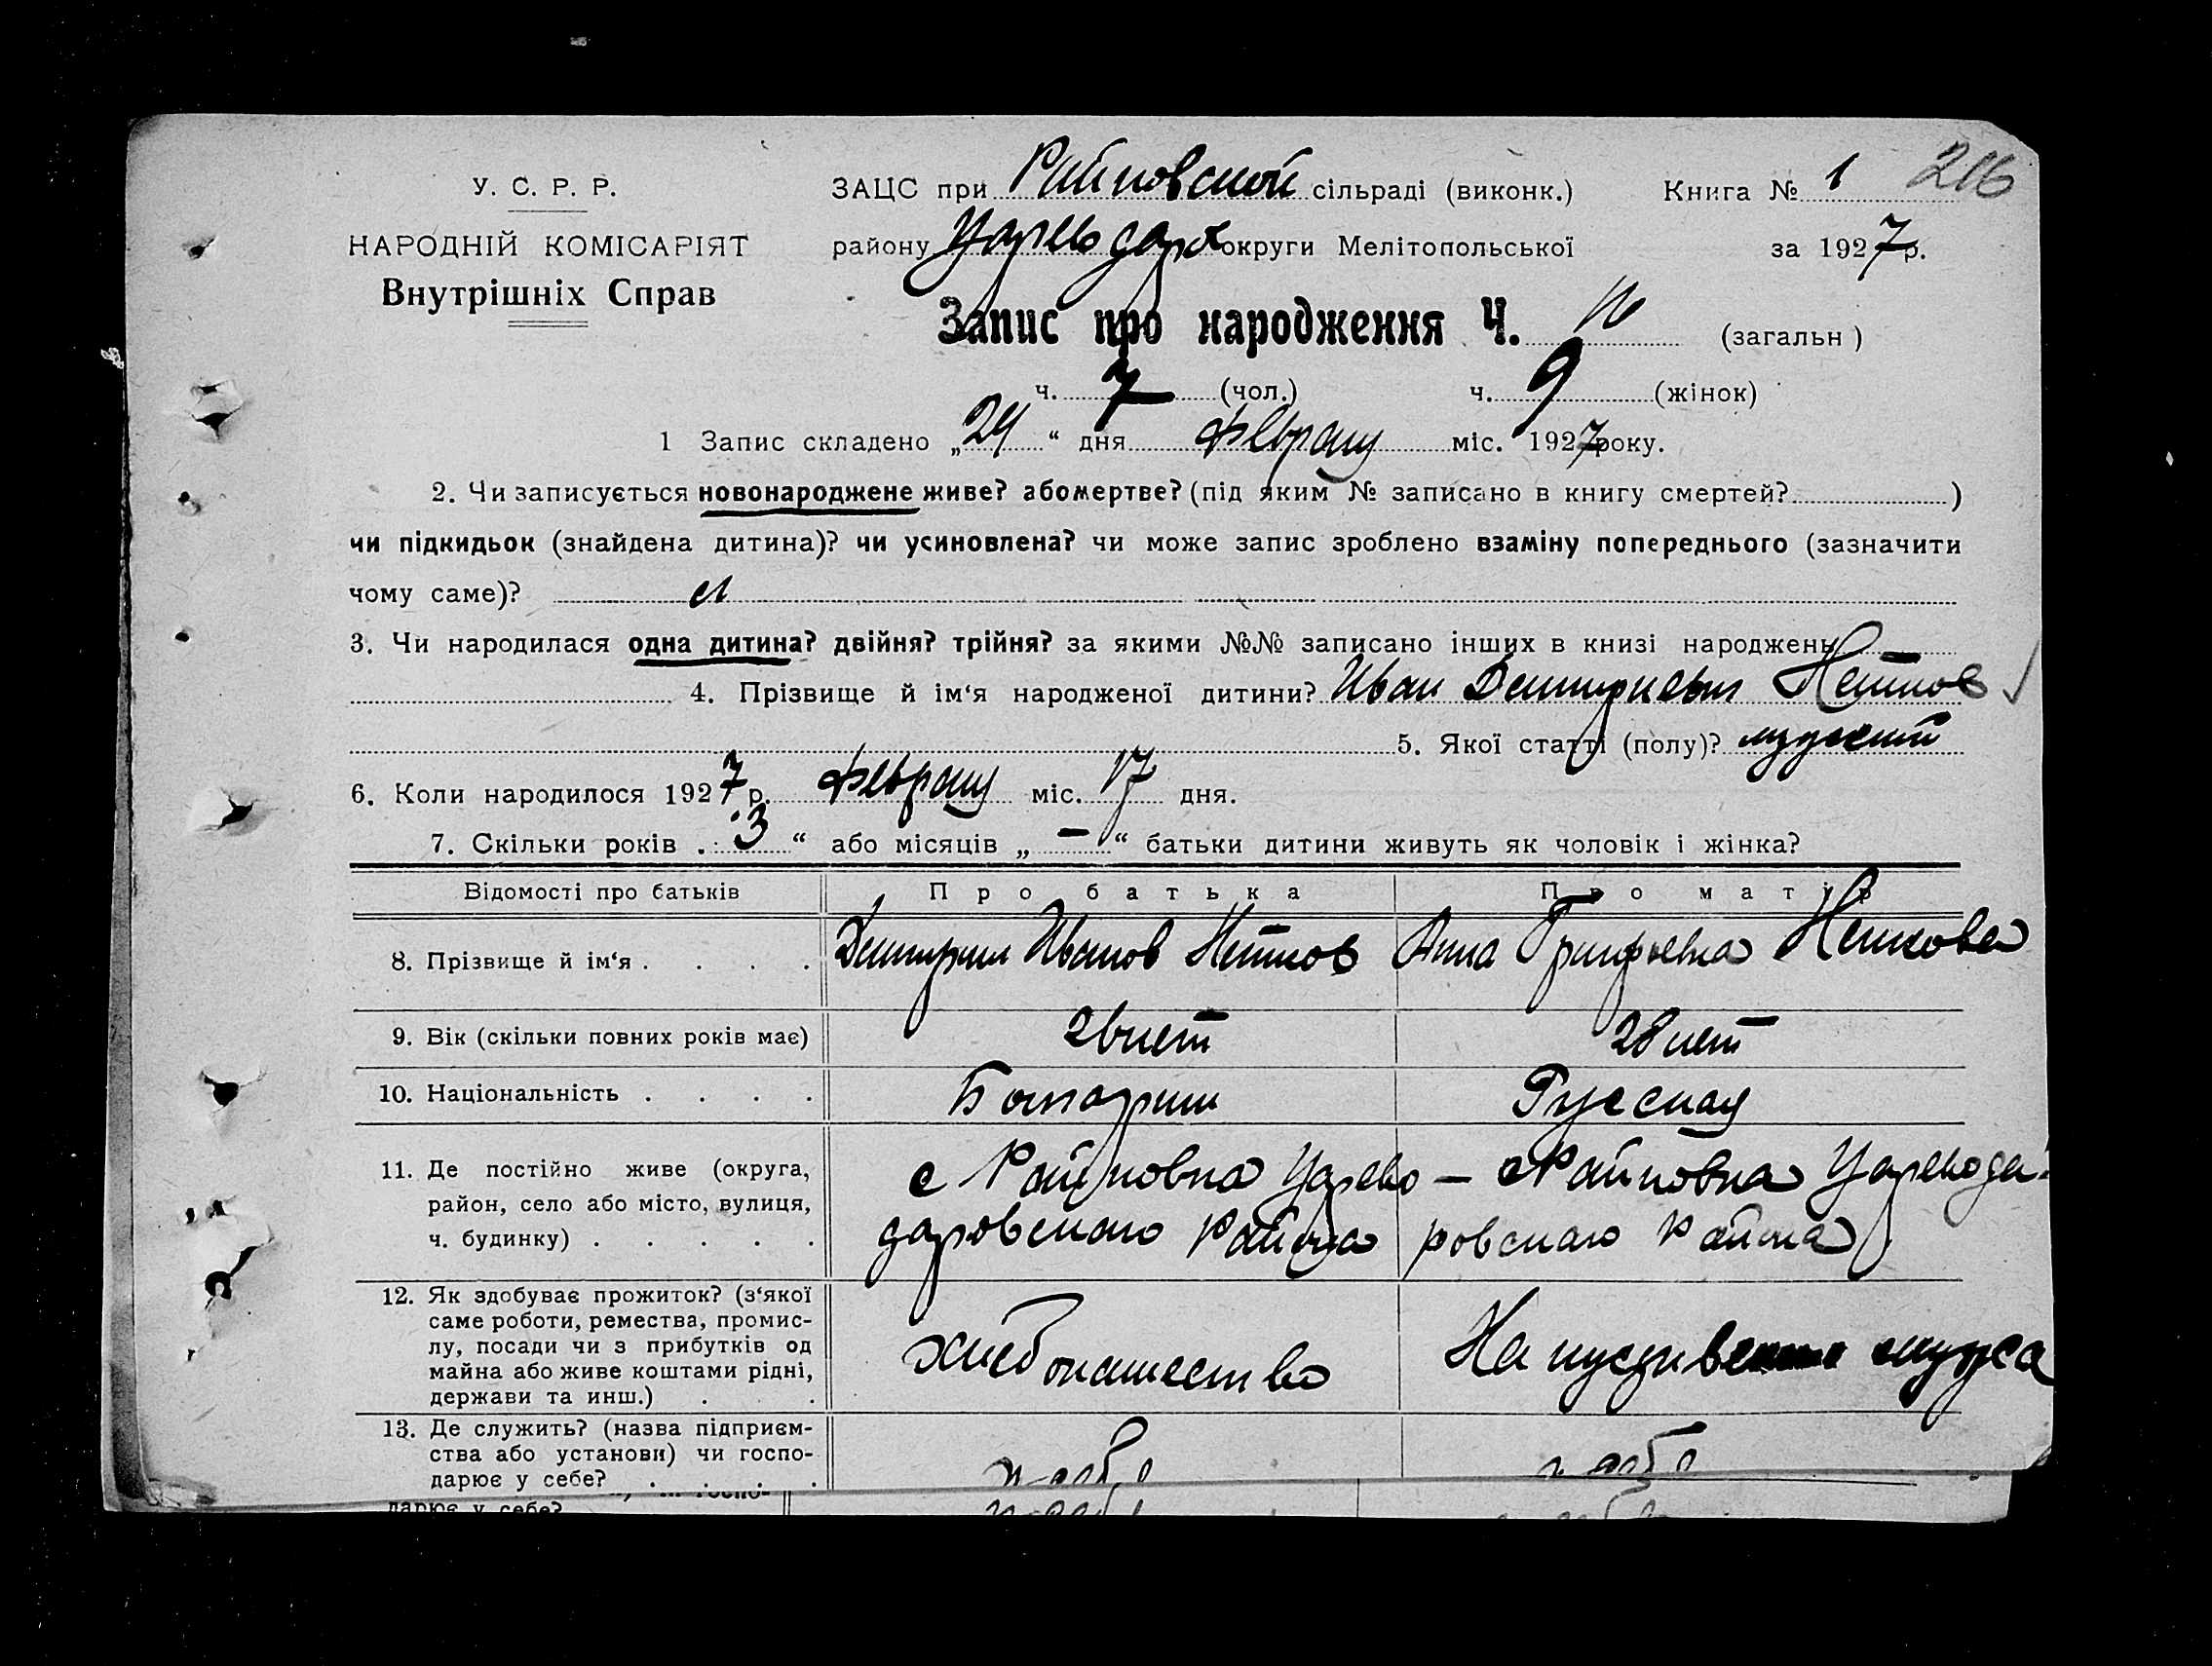 216
У. С. Р. Р.
НАРОДНІЙ КОМІСАРІЯТ
Внутрішніх Справ
ЗАЦС при Райновской сільраді (виконк.) Книга № 1
району Царевдар округи Мелітопольської за 1927 р.
Запис про народження Ч. 16 (загальн )
ч. 7 (чол.) ч. 9 (жінок)
1 Запис складено „24“ дня Февраля міс. 1927 року.
2. Чи записується новонароджене живе? або мертве? (під яким № записано в книгу смертей? )
чи підкидьок (знайдена дитина)? чи усиновлена? чи може запис зроблено взаміну попереднього (зазначити
чому саме)?
3. Чи народилася одна дитина? двійня? трійня? за якими №№ записано інших в книзі народжень
4. Прізвище й ім‘я народженої дитини? Иван Дмитриевич Нейков
5. Якої статті (полу)? мужский
6. Коли народилося 1927 р. Февраля міс. 17 дня.
7. Скільки років „3“ або місяців „—“ батьки дитини живуть як чоловік і жінка?
Відомості про батьків Про батька Про матір
8. Прізвище й ім‘я . . . . Димитрий Иванов Нейков Анна Нейкова
9. Вік (скільки повних років має) 26 лет 28 лет
10. Національність . . . . Болгарин Русская
11. Де постійно живе (округа,
район, село або місто, вулиця,
ч. будинку) . . . . .
с Райновка Царево-
даровскаго Района
с Райновка Царевода-
ровскаго Района
12. Як здобуває прожиток? (з‘якої
саме роботи, ремества, промис-
лу, посади чи з прибутків од
майна або живе коштами рідні,
держави та инш.) . .
Хлебопашество
На мужа
13. Де служить? (назва підприєм-
ства або установи) чи госпо-
дарює у себе? . . . .
дарює у себе?